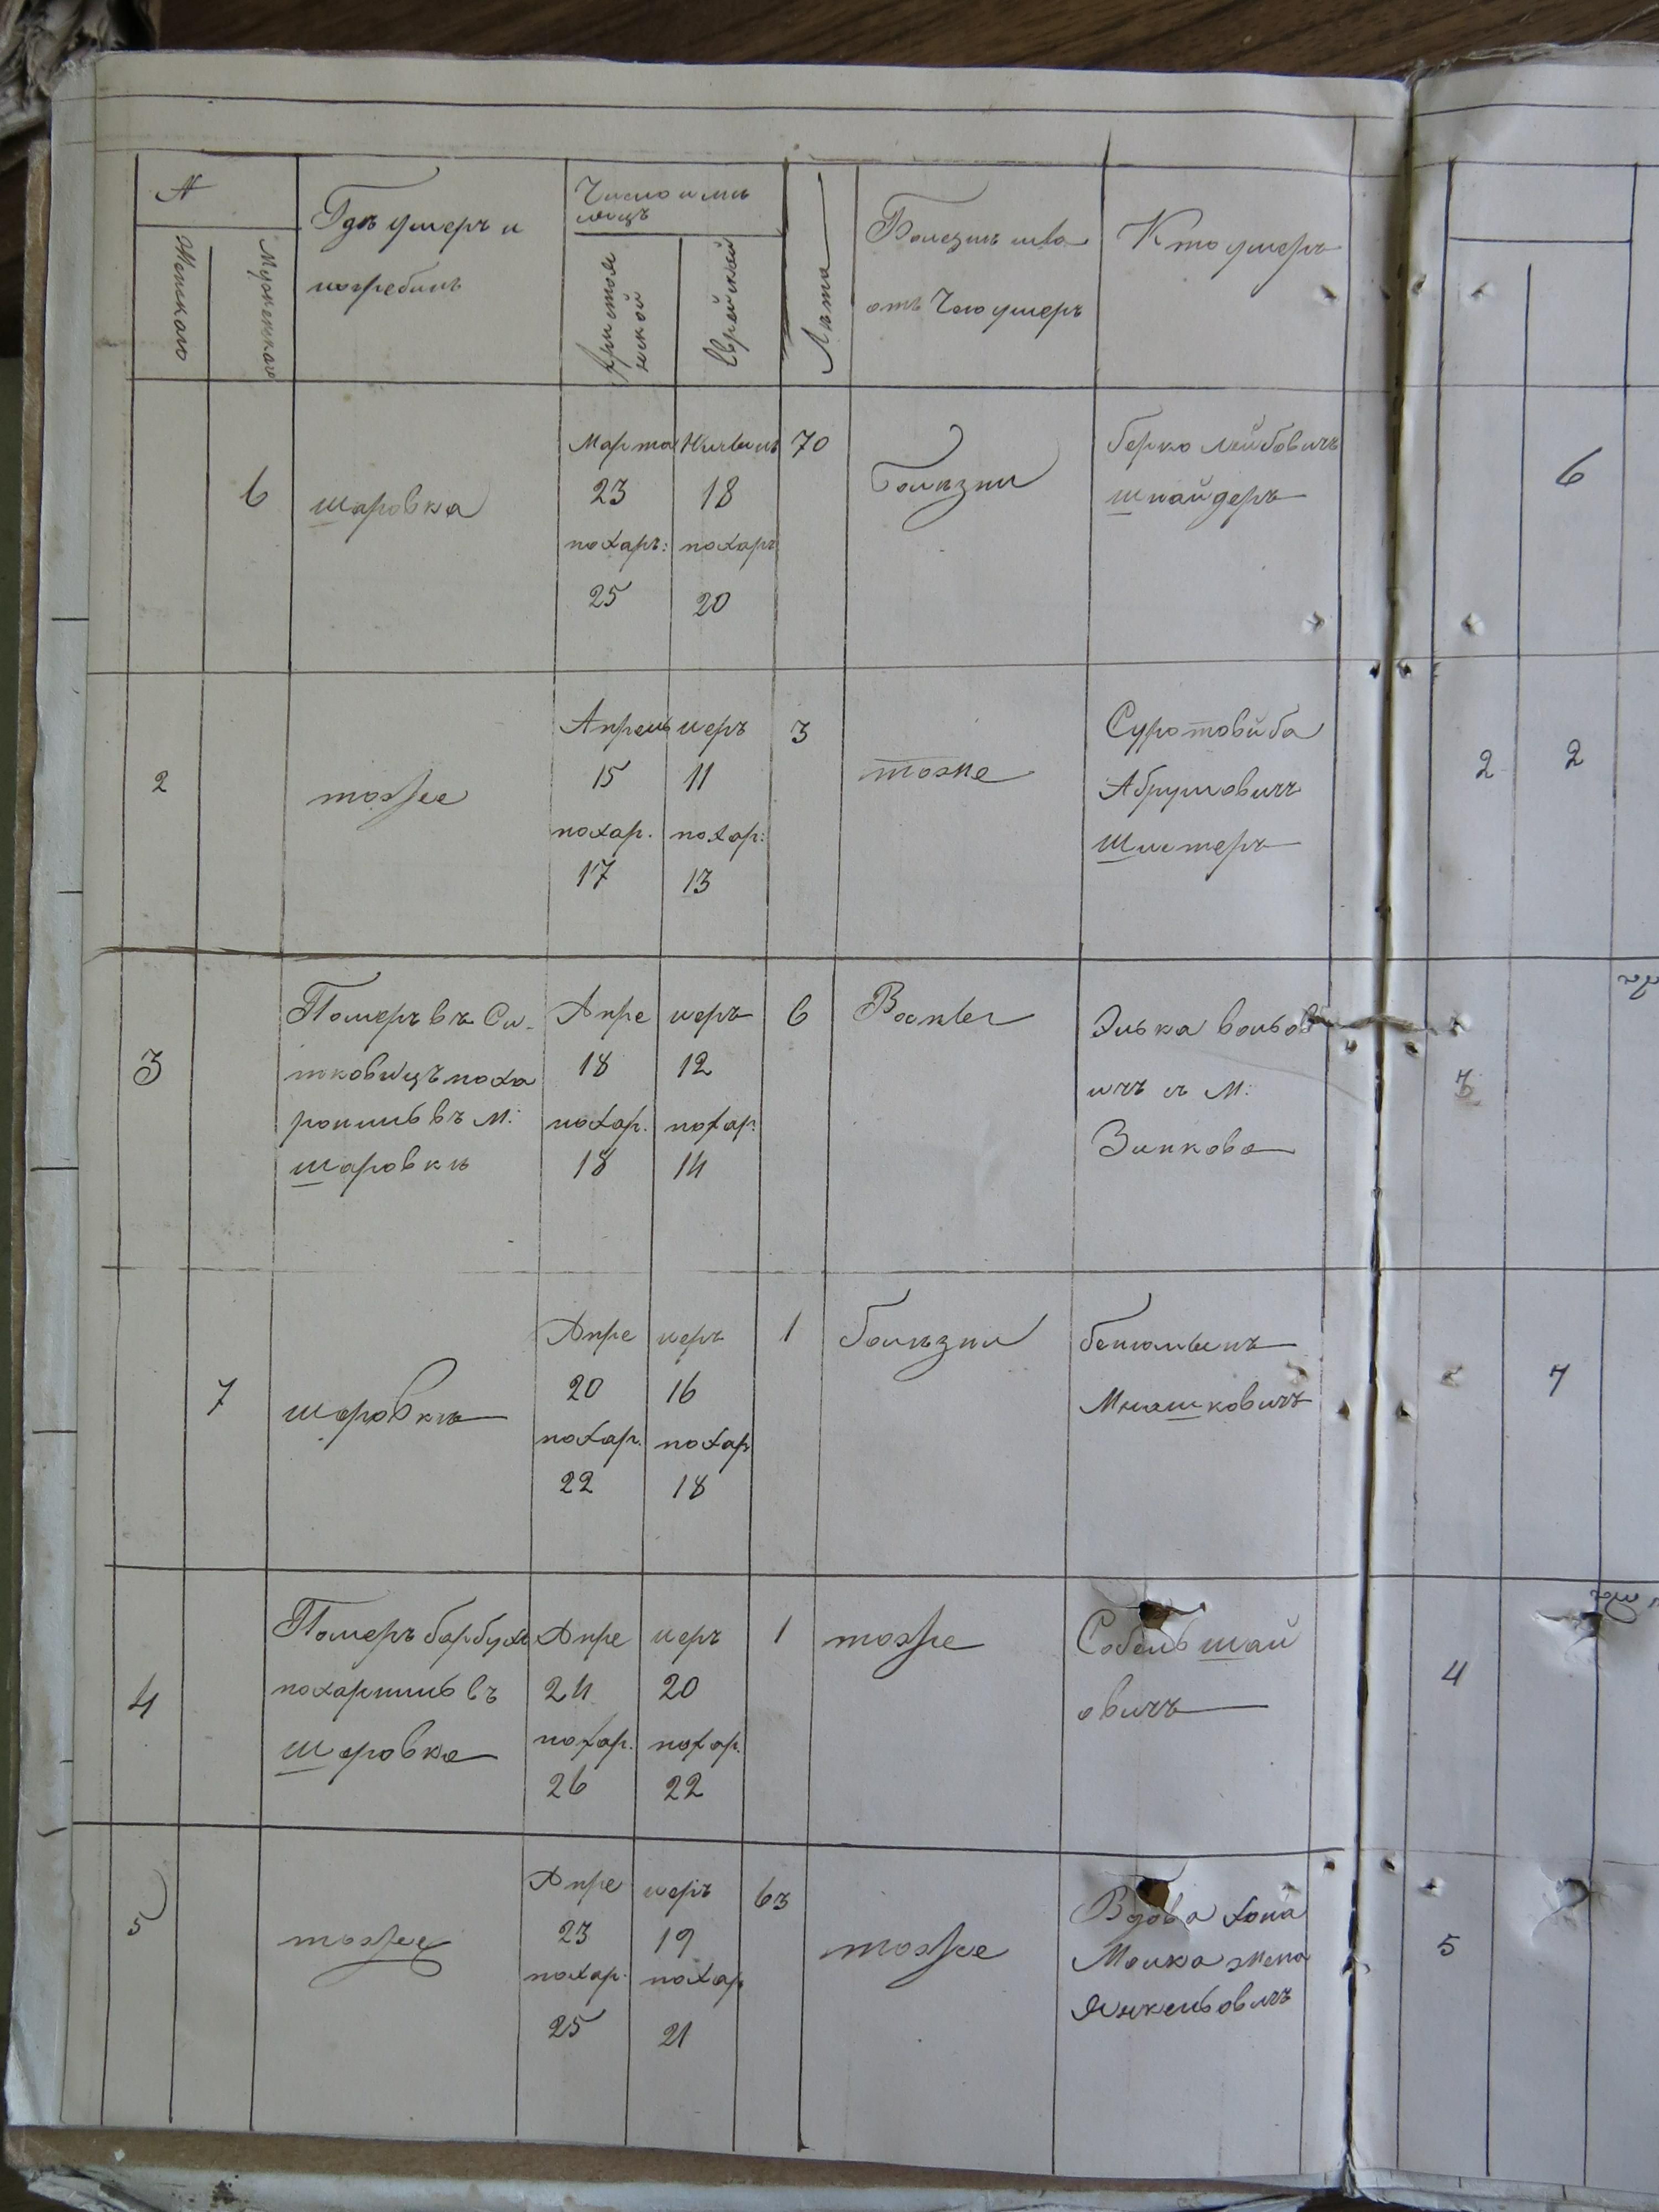 №
Женскаго
Мужескаго
Гдѣ умеръ и
погребенъ
Число и мѣ
сяцъ
Христіа
нской
Еврейской
Лѣта
Болезнь или
отъ чего умеръ
Кто умеръ
6
шаровка
Марта
23
похаръ:
25
18
похаръ
20
70
Болѣзни
Берко Лейбовичъ
шнайдеръ
6
2
тоже
Апрель
15
похар.
17
иеръ
11
похар:
13
3
тоже
Абрумовичъ
Шистеръ
2
2
3
Померъ въ Си-
тковецъ поха
ронинъ въ М:
шаровки
Апре
18
похар.
18
иеръ
12
похар:
14
6
Элька вольов
ичъ съ М:
Зинкова
3
7
шаровкѣ
Апре
20
похар.
22
иеръ
16
похар
18
1
болѣзни
беніоминъ
Мошковичъ
7
4
Померъ
въ
Шаровка
Апре
24
похар.
26
иеръ
20
похар.
22
1
тоже
шай
овичъ
4
5
тоже
Апре
23
похар.
25
иеръ
19
похар
21
63
тоже
Вдова хона
жена
Янкельовичъ
5